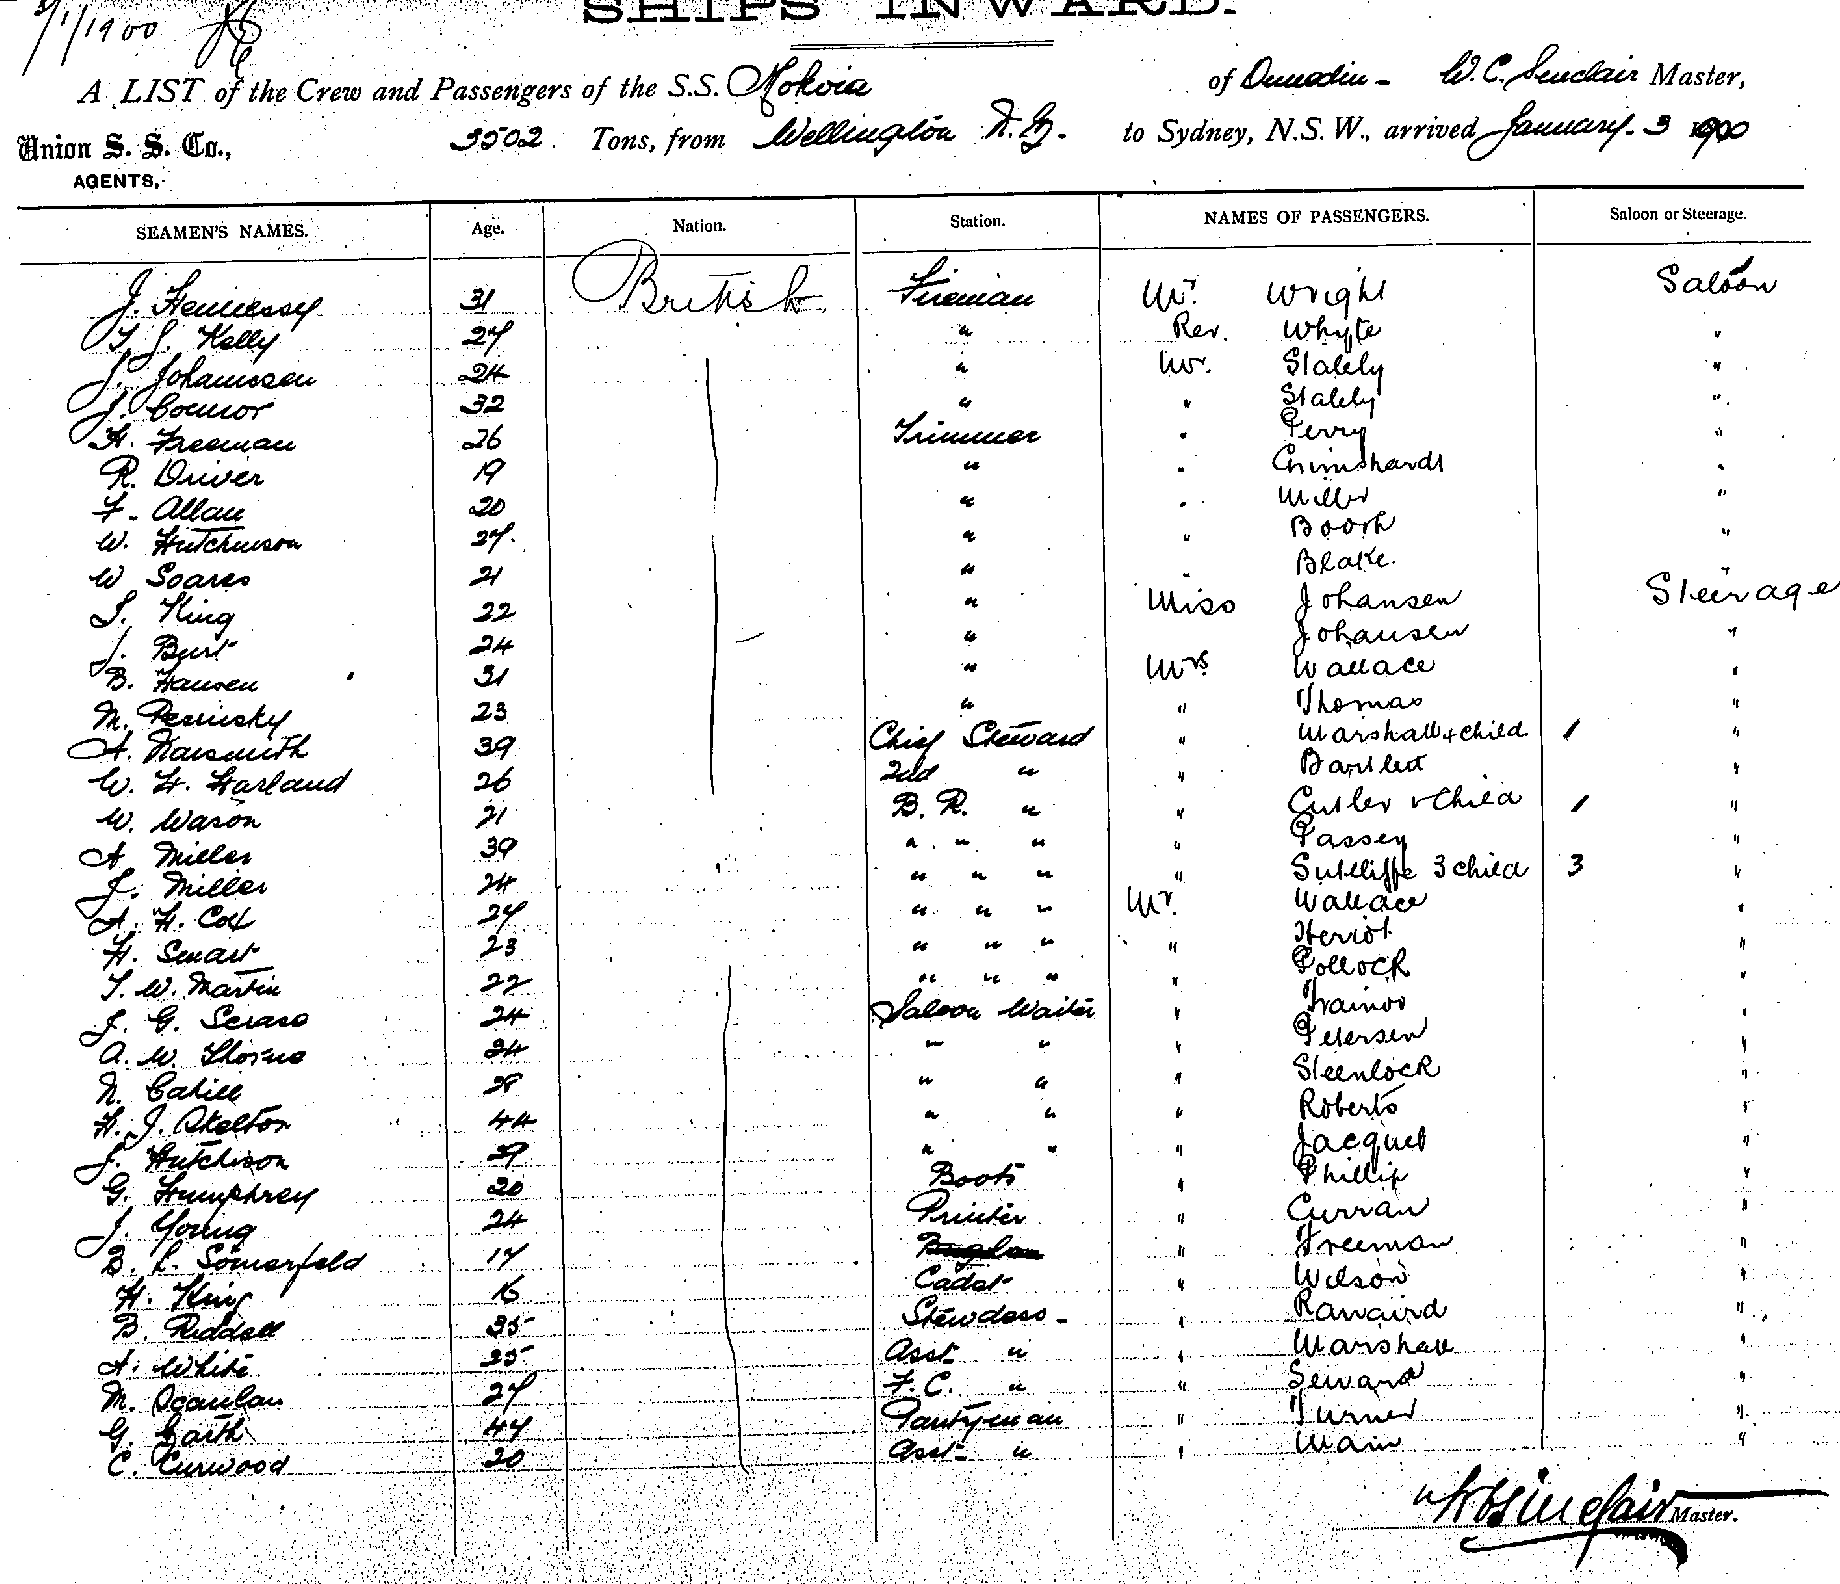 3/1/1900
SHIPS INWARD.
A LIST of the Crew and Passengers of the S.S. Mokoia of Dunedin - W. C. Sinclair Master,
Union S. S. Co., 3502 Tons, from Wellington N.Z. to Sydney, N.S.W., arrived January 3 1900
AGENTS,
SEAMEN'S NAMES. Age. Nation. Station. NAMES OF PASSENGERS. Saloon or Steerage.
J. Hennessy 31 British Fireman Mr. Wright Saloon
T. J. Kelly 27 " Rev. Whyte "
J. Johanssen 24 " Mr. Stably "
J. Connor 32 " " Stably "
H. Freeman 26 Trimmer " Perry "
R. Driver 19 " " "
F. Allan 20 " " Miller "
W. Hutchinson 27 " " Booth "
W Soares 21 " " Blake "
S. King 22 " Miss Johansen Steerage
J. Burt 24 " Johansen "
B. Hansen 31 " Mrs Wallace "
M. 23 " " Thomas "
A. Narsmith 39 Chief Steward " Marshall & child 1 "
W. H. Harland 26 2nd " " Bartlett "
W. Wason 21 B. R. " " Cutler & Child 1 "
A Miller 39 " " " " Passey "
J. Miller 24 " " " " Sutcliffe 3 child 3 "
A. H. Cox 27 " " " Mr. Wallace "
H. Smart 23 " " " " Heriot "
T. W. Martin 22 " " " " Pollock "
J. G. 24 Saloon Waiter " Trainor "
A. W. Thorne 24 " " " Petersen "
N. Cahill 28 " " " Steenlock "
H. J. Skelton 44 " " " Roberts "
J. Hutchison 29 " " " Jacquet "
G. Humphrey 20 Boots " Phillip "
J. Young 24 Printer " Curran "
B. L. Somerfeld 17 " Freeman "
H. King 16 Cadet " Wilson "
B. Riddell 35 Stewdess - " Ranaird "
A. White 25 Asst " " Marshall "
M. Scanlan 27 F. C. " " Seward "
G. Garth 44 Pantryman " Turner "
C. Curwood 20 Asst " " Main "
W C Sinclair Master.